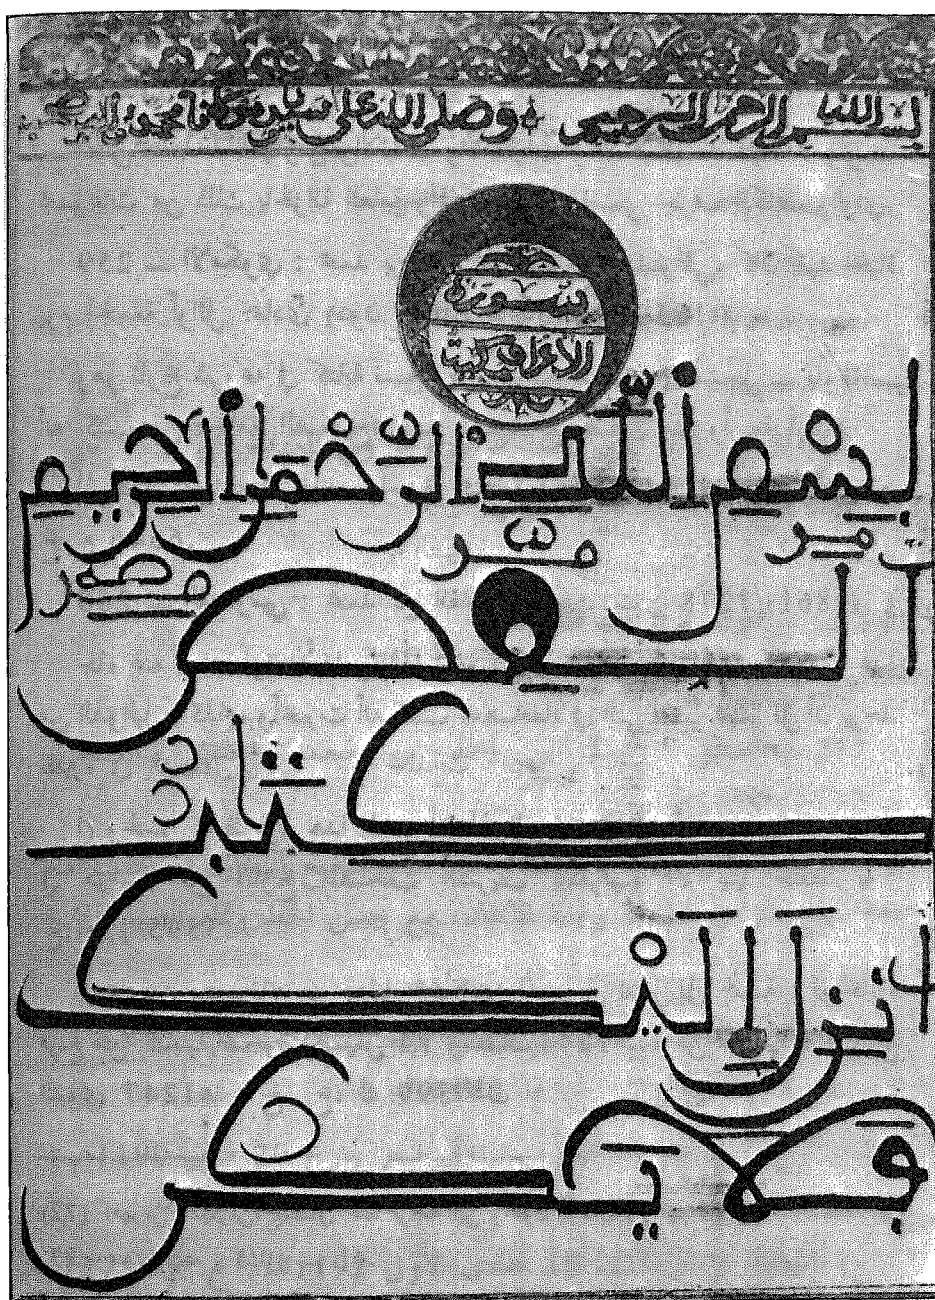 بسم الله الرحمن الرحيم وصلى الله على سيدنا ومولانا محمد
سورة
الأعراف مكية
بِسْمِ اللَّهِ الرَّحْمَٰنِ الرَّحِيمِ
الٓمٓصٓ
كِتَٰبٌ
أُنزِلَ إِلَيْكَ
فَلَا يَكُن